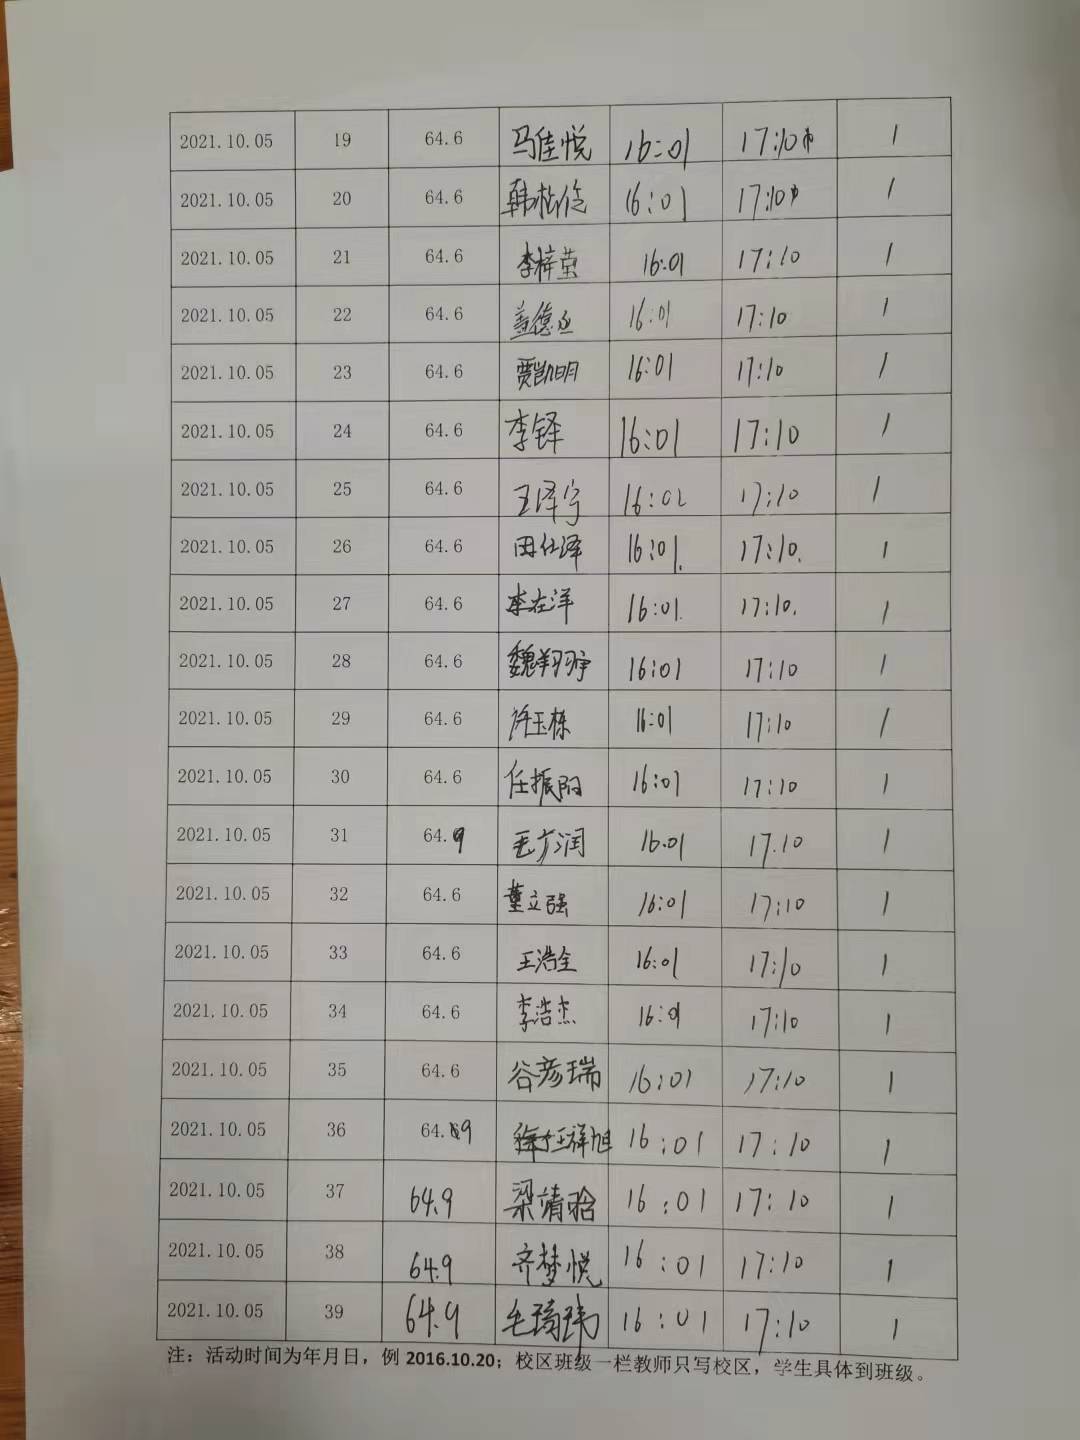 2021.10.05 19 64.6 马佳悦 16:01 17:10 1
2021.10.05 20 64.6 韩松 16:01 17:10 1
2021.10.05 21 64.6 李梓萤 16:01 17:10 1
2021.10.05 22 64.6 盖德丞 16:01 17:10 1
2021.10.05 23 64.6 贾凯明 16:01 17:10 1
2021.10.05 24 64.6 李铎 16:01 17:10 1
2021.10.05 25 64.6 王泽宁 16:02 17:10 1
2021.10.05 26 64.6 田仕泽 16:01. 17:10. 1
2021.10.05 27 64.6 李在洋 16:01. 17:10. 1
2021.10.05 28 64.6 魏翔宇 16:01 17:10 1
2021.10.05 29 64.6 许玉栋 16:01 17:10 1
2021.10.05 30 64.6 任振阳 16:01 17:10 1
2021.10.05 31 64.9 王方润 16.01 17.10 1
2021.10.05 32 64.6 董立强 16:01 17:10 1
2021.10.05 33 64.6 王浩全 16:01 17:10 1
2021.10.05 34 64.6 李浩杰 16:01 17:10 1
2021.10.05 35 64.6 谷彦瑞 16:01 17:10 1
2021.10.05 36 64.9 祥旭 16:01 17:10 1
2021.10.05 37 64.9 梁靖晗 16:01 17:10 1
2021.10.05 38 64.9 齐梦悦 16:01 17:10 1
2021.10.05 39 64.9 毛琦玮 16:01 17:10 1
注：活动时间为年月日，例 2016.10.20；校区班级一栏教师只写校区，学生具体到班级。